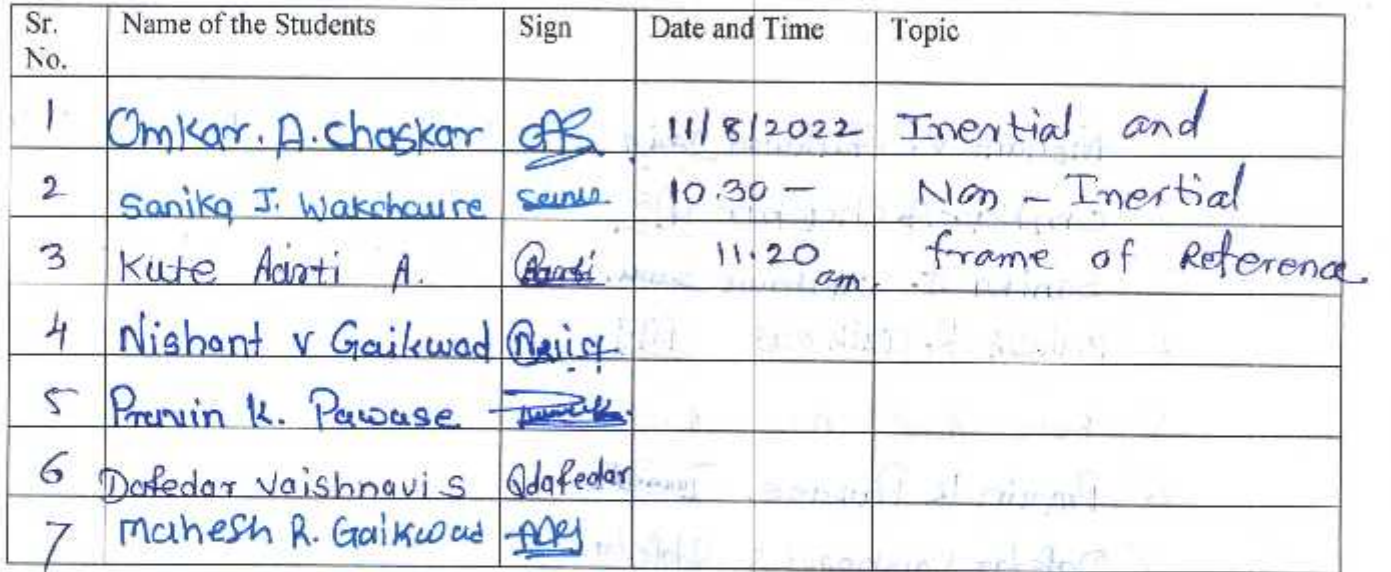 Sr. No. Name of the Students Sign Date and Time Topic
1 Omkar. A. Chaskar 11/8/2022 Inertial and
2 Sanika J. Wakchaure 10.30 - Non - Inertial
3 Kute Aarti A. Aarti 11.20 am. frame of Reference
4 Nishant V Gaikwad
5 Pravin K. Pawase
6 Dafedar Vaishnavi S Dafedar
7 Mahesh R. Gaikwad